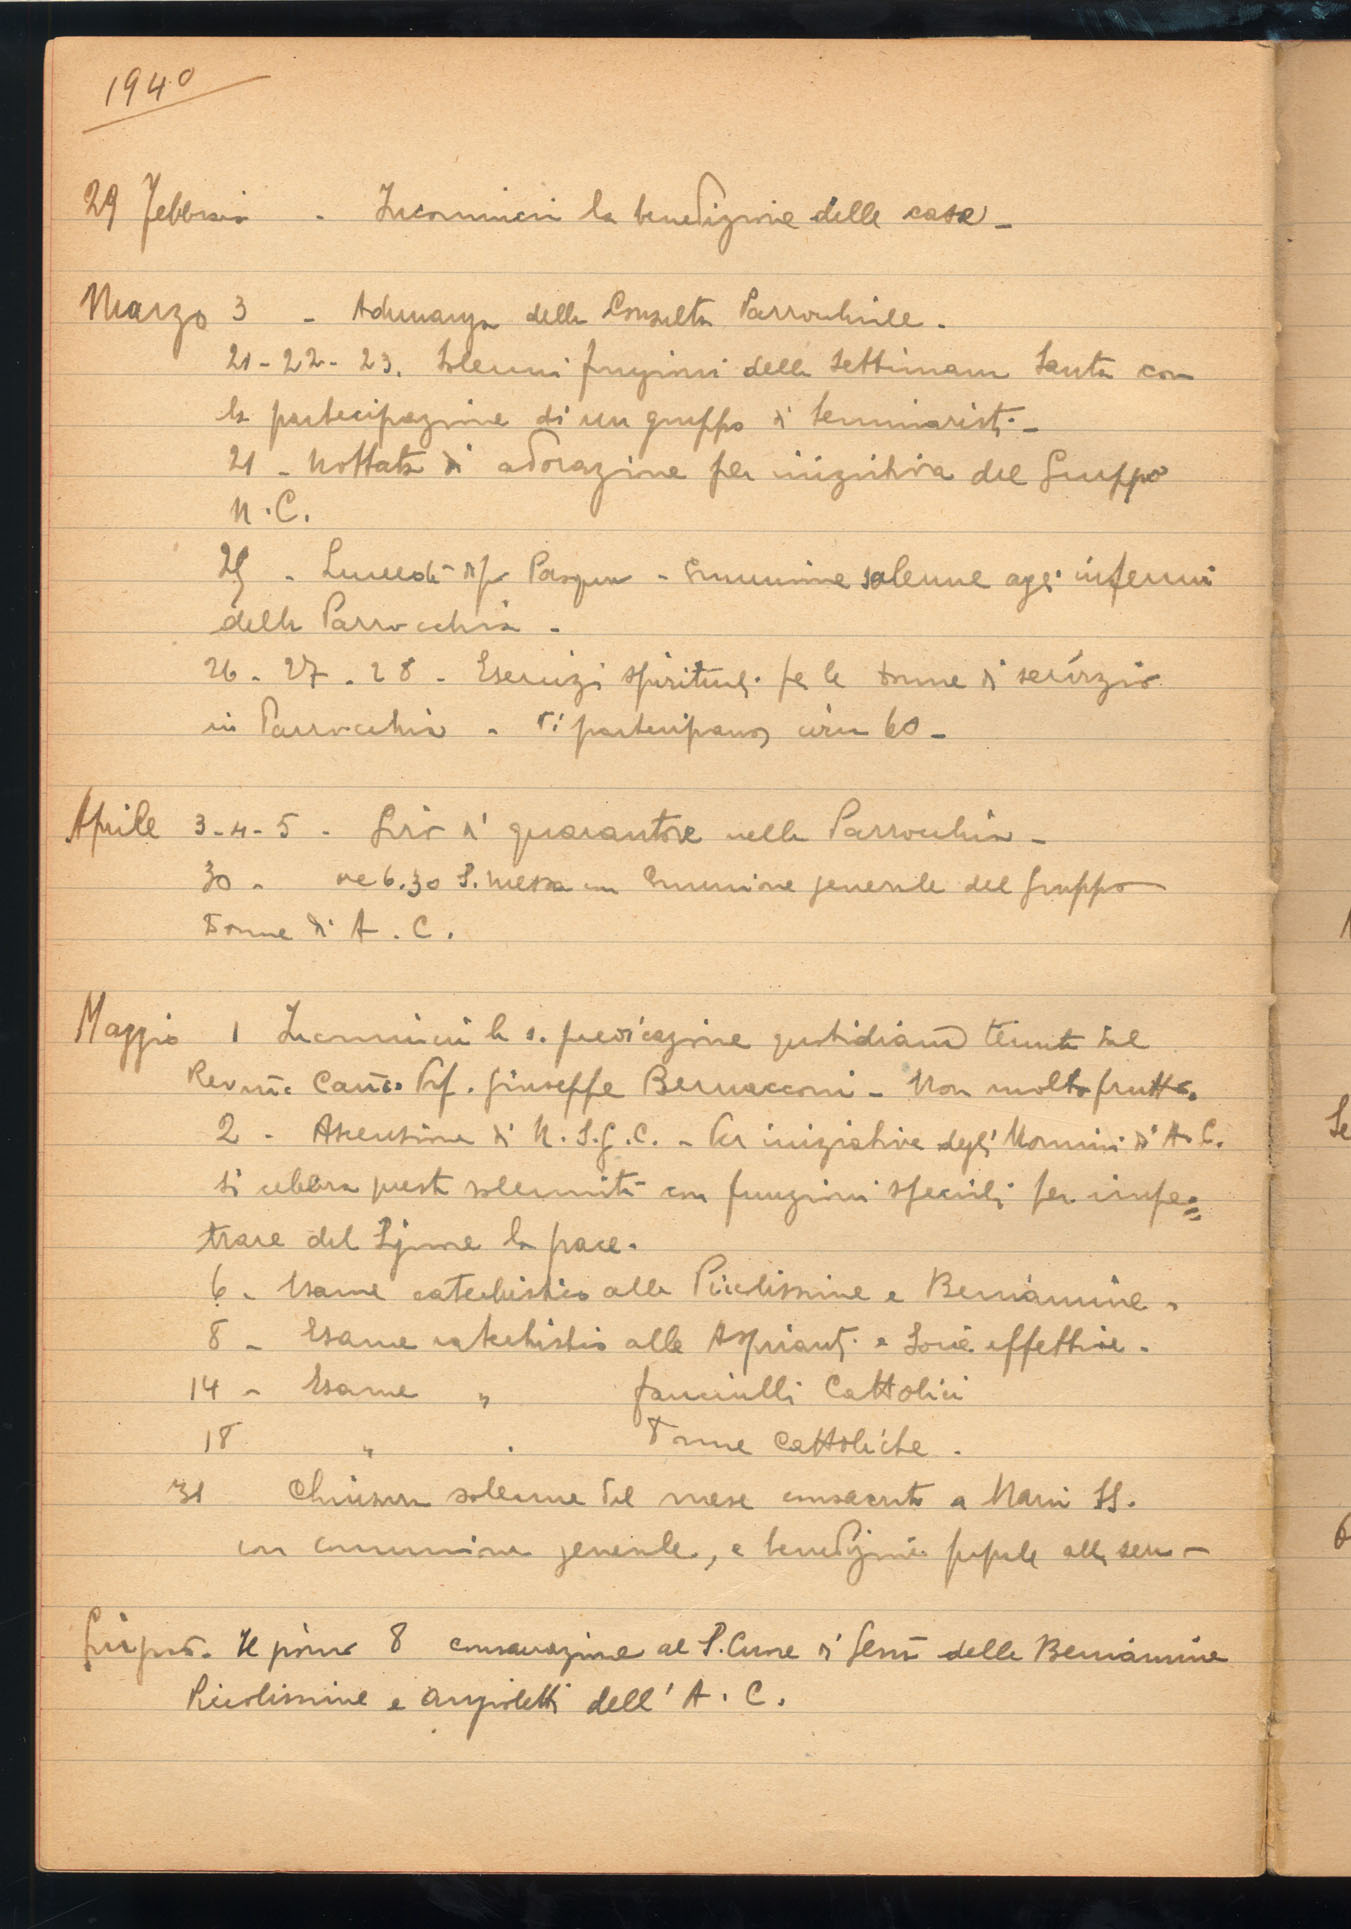 1940
29 Febbraio - Incominci la benedizione delle case -
Marzo 3 - Adunanza della Consulta Parrocchiale.
21-22-23. Solenni funzioni della Settimana Santa con
la partecipazione di un gruppo di Seminaristi. -
21 - Nottata di adorazione per iniziativa del Gruppo
U.C.
25 - Lunedì di Pasqua - Comunione solenne agli infermi
della Parrocchia -
26 - 27 - 28 - Esercizi spirituali per le donne di servizio
in Parrocchia - Vi partecipano circa 60 -
Aprile 3-4-5 - Giro di quarantore nella Parrocchia -
30 - ore 6.30 S. Messa con Comunione generale del Gruppo
Donne di A.C.
Maggio 1 Incominci la s. predicazione quotidiana tenuta dal
Rev.mo Can.co Prof. Giuseppe Bernacconi - Non molto frutto.
2 - Ascensione di N.S.G.C. - Per iniziativa degli Uomini di A.C.
si celebra questa solennità con funzioni speciali per impe=
trare dal Signore la pace.
6 - Esame catechistico alle Piccolissime e Beniamine.
8 - Esame catechistico alle Aspiranti e Socie effettive.
14 - Esame " fanciulli Cattolici
18 " . Donne Cattoliche.
31 Chiusura solenne del mese consacrato a Maria SS.
con comunione generale, e benedizione papale alla sera -
Giugno. Il giorno 8 consacrazione al S. Cuore di Gesù delle Beniamine
Piccolissime e angioletti dell'A.C.